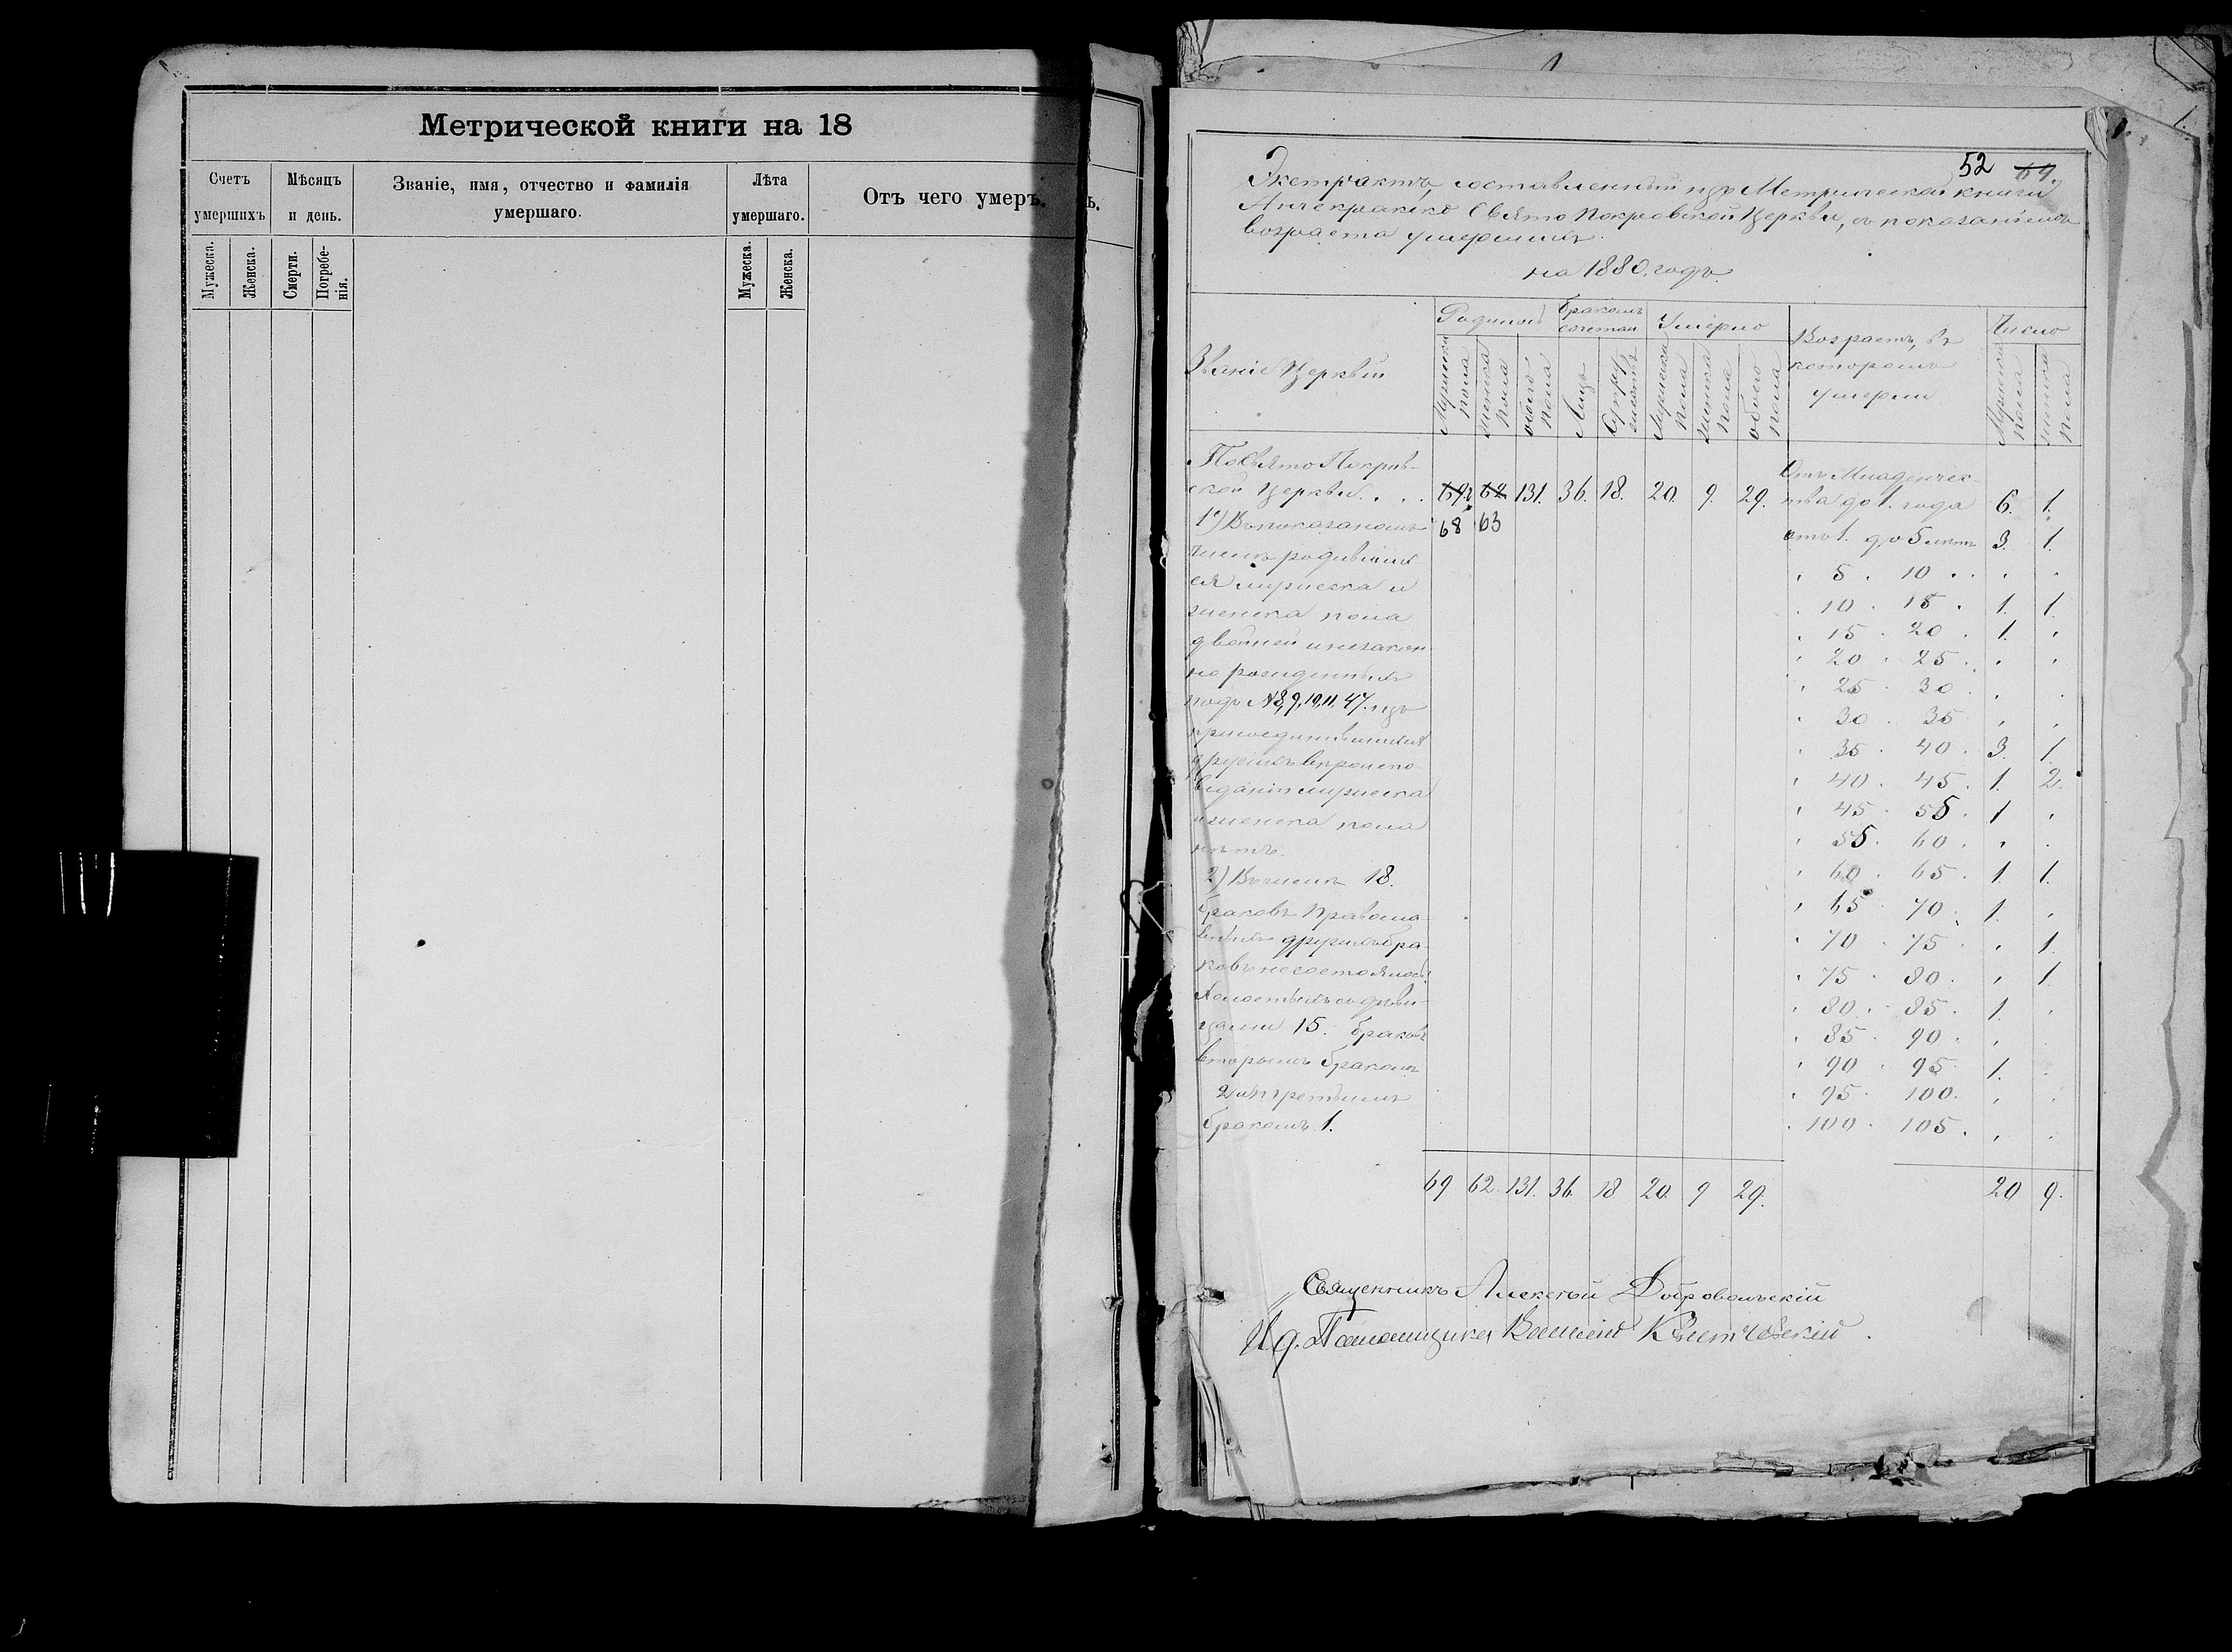 Метрической книги на 18
Счетъ умершихъ
Мѣсяцъ и день.
Званіе, имя, отчество и фамилія умершаго.
Лѣта умершаго.
Отъ чего умеръ.
ь.
Мужеска.
Женска.
Смерти.
Погребенія.
Мужеска.
Женска.
52 69
Экстрактъ, составленный изъ Метрической книги
Свято Покровской Церкви, съ показаніемъ
возраста умершихъ.
на 1880. годъ.
Званіе Церквей
Родилось
бракомъ сочетан
Умерло
Возрастъ, въ
которомъ
умерли
Число
Мужеска пола
женска пола
обоего пола
Лицъ
Супружествъ
Мужеска пола
женска пола
обоего пола
Мужеска пола
женска пола
По Свято Покров-
ской Церкви . . . 69. 62 131. 36. 18. 20. 9. 29.
68 63
1) Въ показаномъ
числѣ родивших
ся мужеска и
женска пола
двойней и незакон
но рожденныхъ
подъ №8, 9, 10, 11, 47. изъ
присоединившихся
другихъ вѣроиспо
веданій мужеска
и женска пола
нѣтъ.
2) Въ числѣ 18.
браковъ Правосла
вныхъ другихъ бра
ковъ не состоялось
Холостыхъ съ дѣви-
цами 15. браковъ
вторымъ бракомъ
2 и третьимъ
бракомъ 1.
Отъ Младенчес-
тва до 1. года 6. 1.
отъ 1. до 5 лѣтъ 3. 1.
" 5 . 10 . . " "
" 10 . 15 . 1. 1.
" 15 . 20 . 1. "
" 20 . 25 . " "
" 25 . 30 . " "
" 30 . 35 " "
" 35 . 40 . 3. 1.
" 40 . 45 . 1. 2.
" 45 . 55 . 1 "
" 55 . 60 . " "
" 60 . 65 . 1. 1.
" 65 . 70 . 1. "
" 70 . 75 . " 1.
" 75 . 80 . " 1.
" 80 . 85 . 1. "
" 85 . 90 . " "
" 90 . 95 . 1. "
" 95 . 100. " "
" 100 . 105 . " "
69 62. 131. 36. 18 20. 9 29. 20 9.
Священникъ Алексѣй Добровольскій
И д. Псаломщика Василій